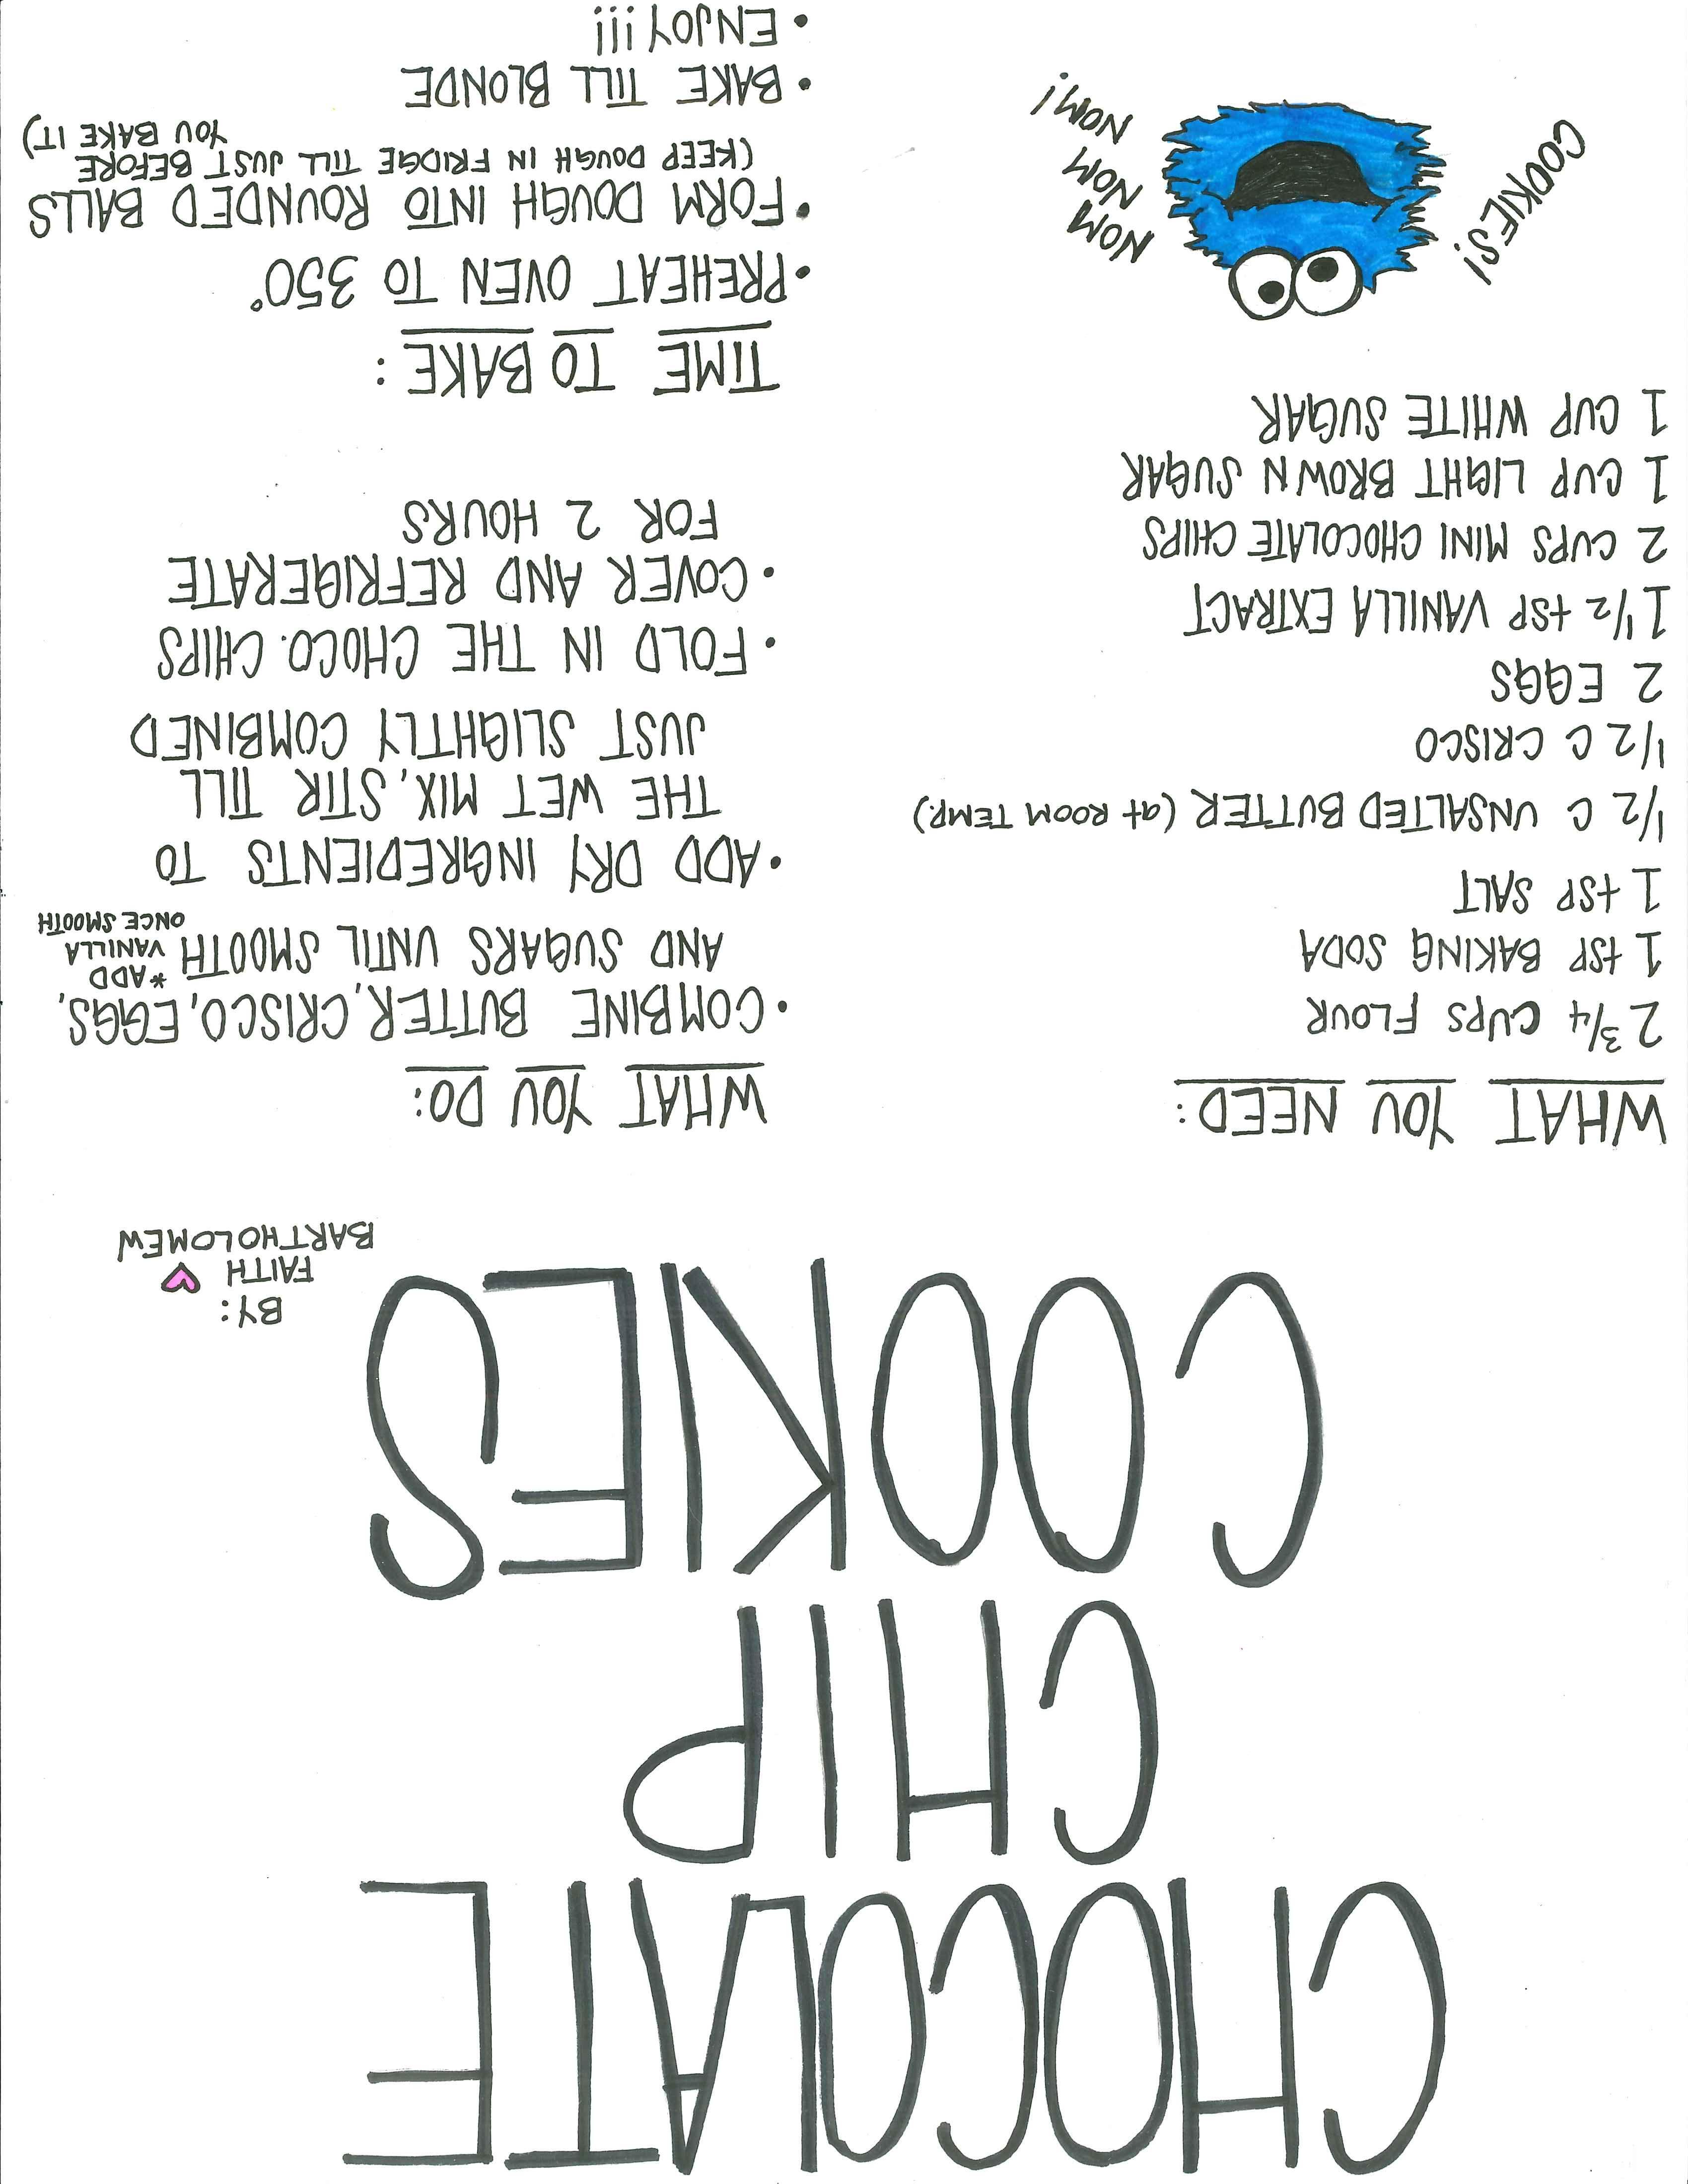 CHOCOLATE
CHIP
COOKIES
BY:
FAITH
BARTHOLOMEW
WHAT YOU NEED:
2 3/4 CUPS FLOUR
1 tSP BAKING SODA
1 tSP SALT
1/2 C UNSALTED BUTTER (at ROOM TEMP.)
1/2 C CRISCO
2 EGGS
1 1/2 tSP VANILLA EXTRACT
2 CUPS MINI CHOCOLATE CHIPS
1 CUP LIGHT BROWN SUGAR
1 CUP WHITE SUGAR
COOKIES!
NOM
NOM
NOM!
WHAT YOU DO:
• COMBINE BUTTER, CRISCO, EGGS,
AND SUGARS UNTIL SMOOTH
*ADD
VANILLA
ONCE SMOOTH
• ADD DRY INGREDIENTS TO
THE WET MIX, STIR TILL
JUST SLIGHTLY COMBINED
• FOLD IN THE CHOCO. CHIPS
• COVER AND REFRIGERATE
FOR 2 HOURS
TIME TO BAKE:
• PREHEAT OVEN TO 350°
• FORM DOUGH INTO ROUNDED BALLS
(KEEP DOUGH IN FRIDGE TILL JUST BEFORE
YOU BAKE IT)
• BAKE TILL BLONDE
• ENJOY!!!